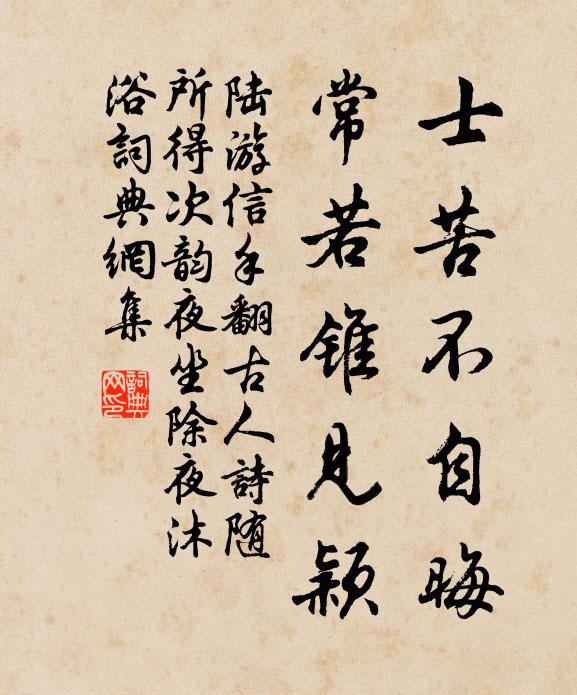 士苦不自晦
常若錐見穎
陆游信手翻古人詩随
所得次韵夜坐除夜沐
浴詞典網集
詞典
网印